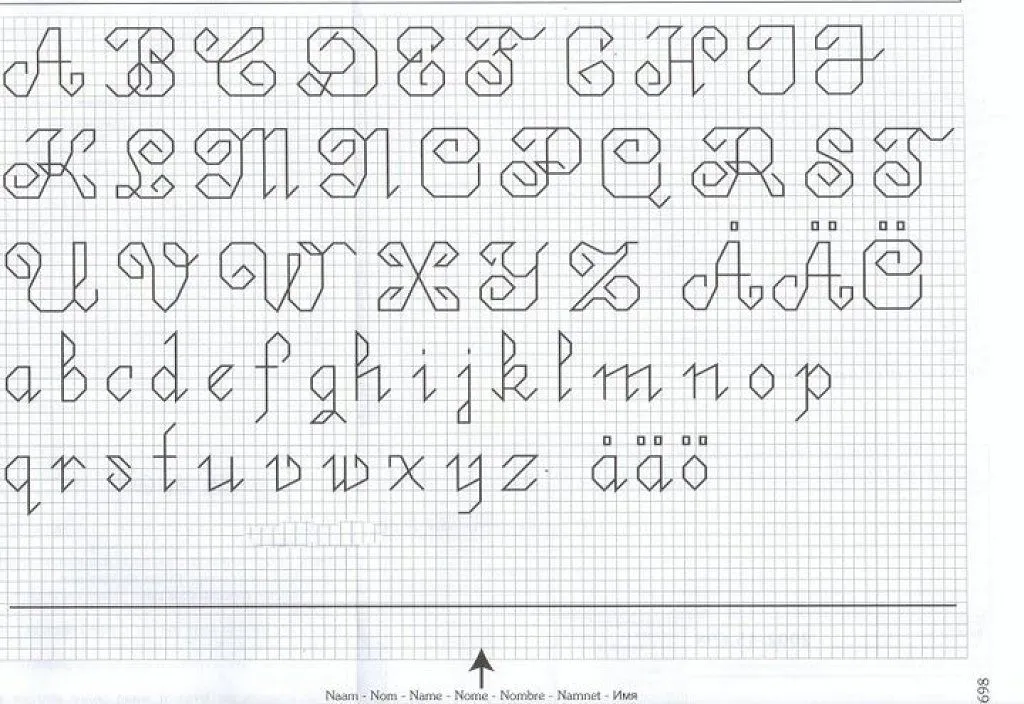 A B C D E F G H I J
K L M N O P Q R S T
U V W X Y Z Å Ä Ö
a b c d e f g h i j k l m n o p
q r s t u v w x y z å ä ö
Naam - Nom - Name - Nome - Nombre - Namnet - Имя
698